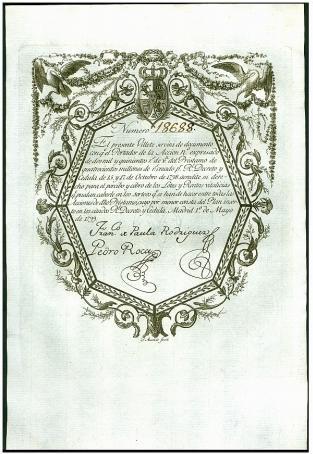 Numero 18688.
El presente Villete servira de documento
con el Portador de la Accion N. expresado
de dos mil y quinientos r.s de v.n del Préstamo de
quatrocientos millones de
Cedula de 15 y 17 de Octubre de 1798
cho para el percibo y cobro de los Lotes y Rentas vitalicias
puedan caberle en los sorteos q.e se han de hacer entre todas las
Acciones de dho Préstamo, cuyo por menor consta del Plan inser
to en los citados R.l Decreto y Cedula. Madrid 1.º de Mayo
de 1799.
Fran.co de Paula Rodriguez
Pedro Roca